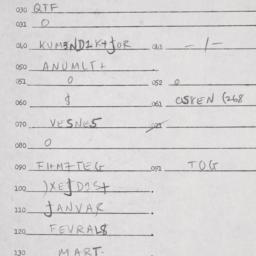 030 QTF
031 O
040 KUMENDIK+JOR 041 -/-
050 ANUMLT+
051 O 052 O
060 $ 061 OSKEN (268
070 VESNES
080 O
090 FIHM7TEG 091 TOG
100 )XEJDIS+
110 JANVAR
120 FEVRAL8
130 MART.